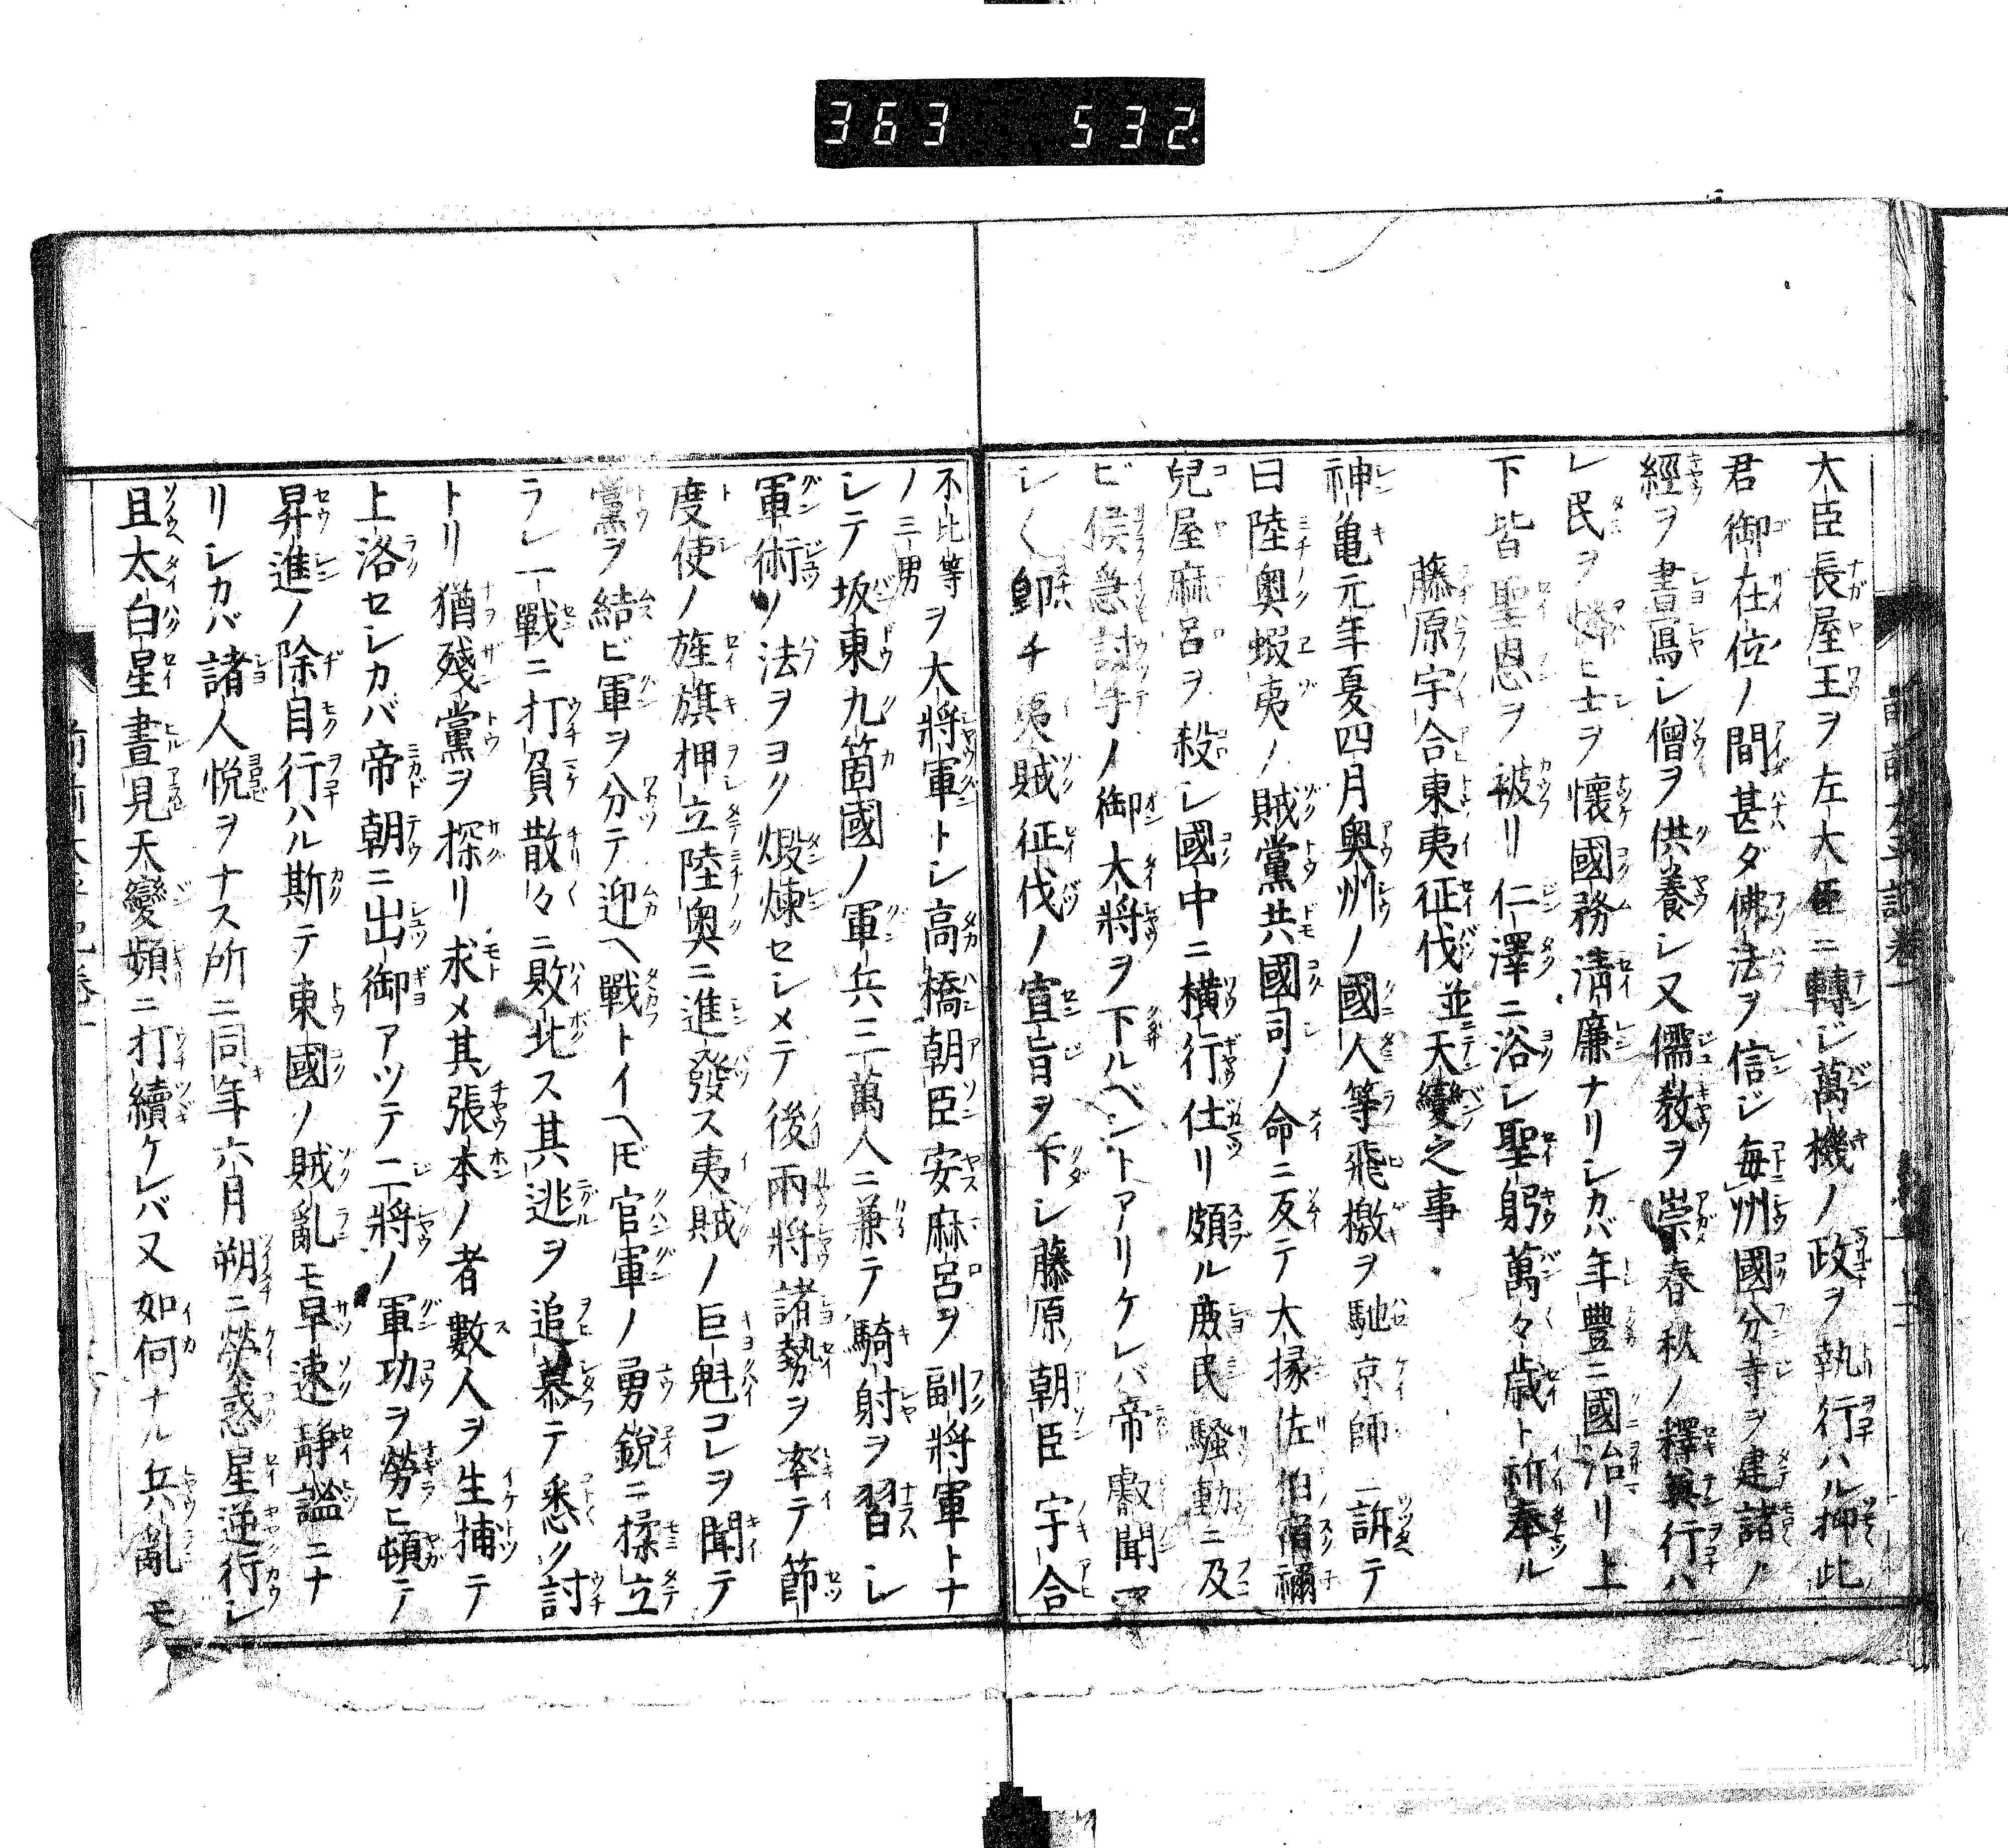 363 532.
前前太平記卷一
大臣長屋王ヲ左大臣ニ轉ジ萬機ノ政ヲ執行ハル抑此
君御在位ノ間甚ダ佛法ヲ信ジ毎州國分寺ヲ建諸ノ
經ヲ書寫レ僧ヲ供養レ又儒教ヲ崇春秋ノ釋奠行ハ
レ民ヲ憐ヒ士ヲ懷國務清廉ナリレカバ年豐ニ國治リ上
下皆聖恩ヲ被リ仁澤ニ浴レ聖躬萬々歳ト祈奉ル
藤原宇合東夷征伐並天變之事
神亀元年夏四月奥州ノ國人等飛檄ヲ馳京師ニ訴テ
曰陸奥蝦夷ノ賊黨共國司ノ命ニ反テ大掾佐伯宿禰
兒屋麻呂ヲ殺レ國中ニ横行仕リ頗ル庶民騒動ニ及
ビ候急討手ノ御大將ヲ下ルベシトアリケレバ帝叡聞
レク即チ夷賊征伐ノ宣旨ヲ下レ藤原朝臣宇合
不比等ノ三男ヲ大將軍トレ高橋朝臣安麻呂ヲ副將軍トナ
レテ坂東九箇國ノ軍兵三萬人ニ兼テ騎射ヲ習レ
軍術ノ法ヲヨク煅煉セレメテ後兩將諸勢ヲ率テ節
度使ノ旌旗押立陸奥ニ進發ス夷賊ノ巨魁コレヲ聞テ
黨ヲ結ビ軍ヲ分テ迎ヘ戰トイヘ𪜈官軍ノ勇銳ニ揉立
ラレ一戰ニ打負散々ニ敗北ス其逃ヲ追慕テ悉ク討
トリ猶殘黨ヲ探リ求メ其張本ノ者數人ヲ生捕テ
上洛セレカバ帝朝ニ出御アツテ二將ノ軍功ヲ勞ヒ頓テ
昇進ノ除目行ハル斯テ東國ノ賊亂モ早速靜謐ニナ
リレカバ諸人悦ヲナス所ニ同年六月朔ニ熒惑星逆行レ
且太白星晝見天變頻ニ打續ケレバ又如何ナル兵亂モ